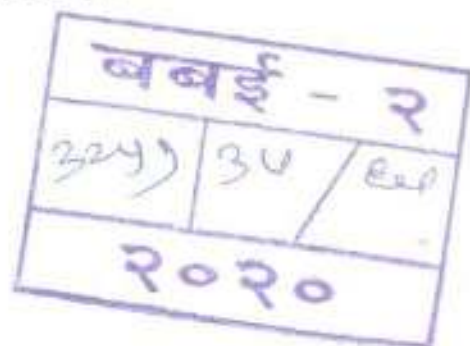 बबई - २
३२५१ ३५ /
२०२०